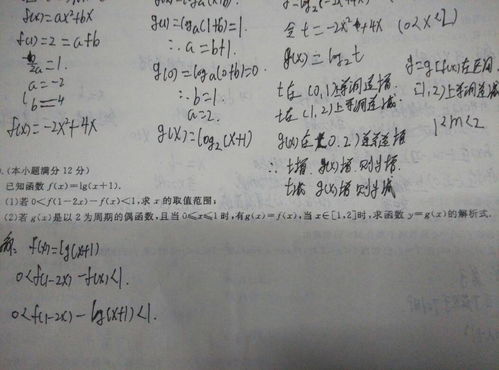 f(x)=ax²+bx
f(1)=2=a+b
a=1.
a=-2
b=4
f(x)=-2x²+4x
g(1)=loga(1+b)=1.
∴a=b+1.
g(0)=loga(0+b)=0
∴b=1.
a=2.
g(x)=log₂(x+1)
令t=-2x²+4x (0<x<2)
g(x)=log₂t
t在(0,1)上单调递增
t在(1,2)上单调递减.
g(x)在(0,2)
∴t增 g(x)增 则
y=g[f(x)]在区间
1<m<2
(本小题满分 12 分)
已知函数 f(x)=lg(x+1).
(1)若 0<f(1-2x)-f(x)<1,求 x 的取值范围;
(2)若 g(x)是以 2 为周期的偶函数,且当 0≤x≤1 时,有 g(x)=f(x),当 x∈[1,2]时,求函数 y=g(x)的解析式.
解: f(x)=lg(x+1)
0<f(1-2x)-f(x)<1.
0<f(1-2x)-lg(x+1)<1.